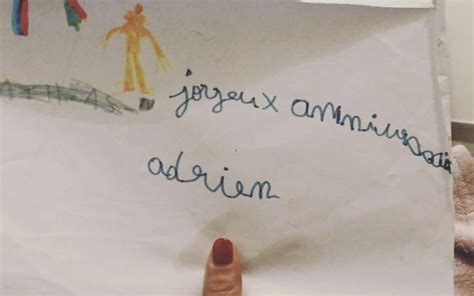 joyeux anniversai
adrien